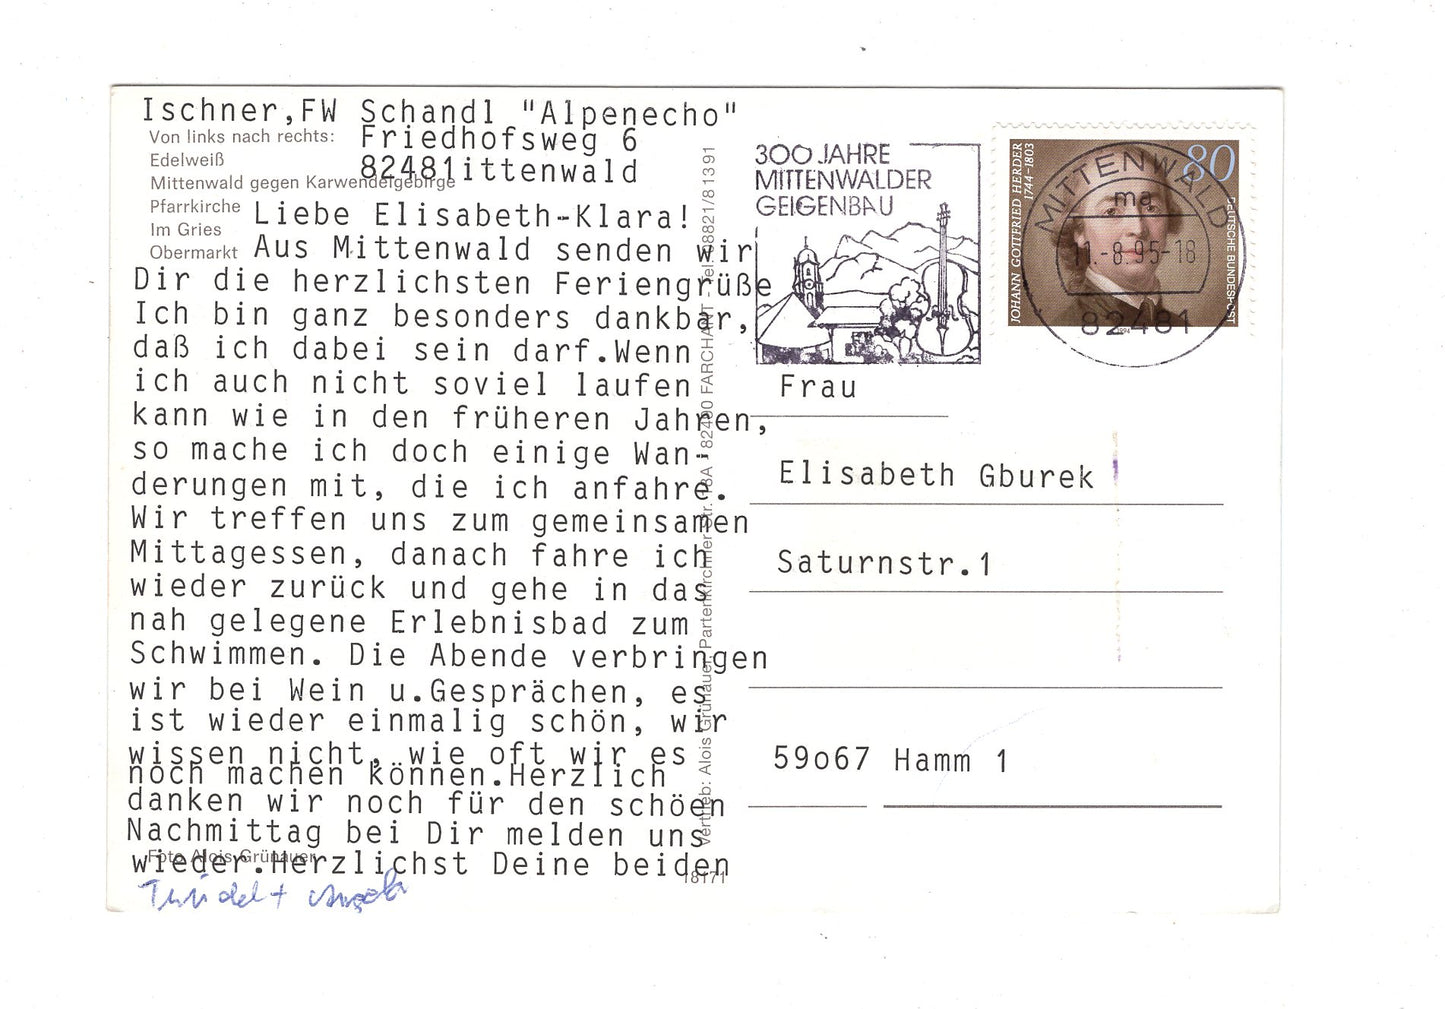 Ischner,FW Schandl "Alpenecho"
Friedhofsweg 6
82481ittenwald
Von links nach rechts:
Edelweiß
Mittenwald gegen Karwendelgebirge
Pfarrkirche
Im Gries
Obermarkt
Liebe Elisabeth-Klara!
Aus Mittenwald senden wir
Dir die herzlichsten Feriengrüße
Ich bin ganz besonders dankbar,
daß ich dabei sein darf.Wenn
ich auch nicht soviel laufen
kann wie in den früheren Jahren,
so mache ich doch einige Wan-
derungen mit, die ich anfahre.
Wir treffen uns zum gemeinsamen
Mittagessen, danach fahre ich
wieder zurück und gehe in das
nah gelegene Erlebnisbad zum
Schwimmen. Die Abende verbringen
wir bei Wein u.Gesprächen, es
ist wieder einmalig schön, wir
wissen nicht, wie oft wir es
noch machen können.Herzlich
danken wir noch für den schöen
Nachmittag bei Dir melden uns
wieder.Herzlichst Deine beiden
Foto Alois Grünauer
18171
Vertrieb: Alois Grünauer, Partenkirchner Str. 18A · 82490 FARCHANT · Tel. 08821/81391
300 JAHRE
MITTENWALDER
GEIGENBAU
JOHANN GOTTFRIED HERDER
1744-1803
80
DEUTSCHE BUNDESPOST
MITTENWALD
ma
11.-8.95-18
82481
Frau
Elisabeth Gburek
Saturnstr.1
59o67 Hamm 1